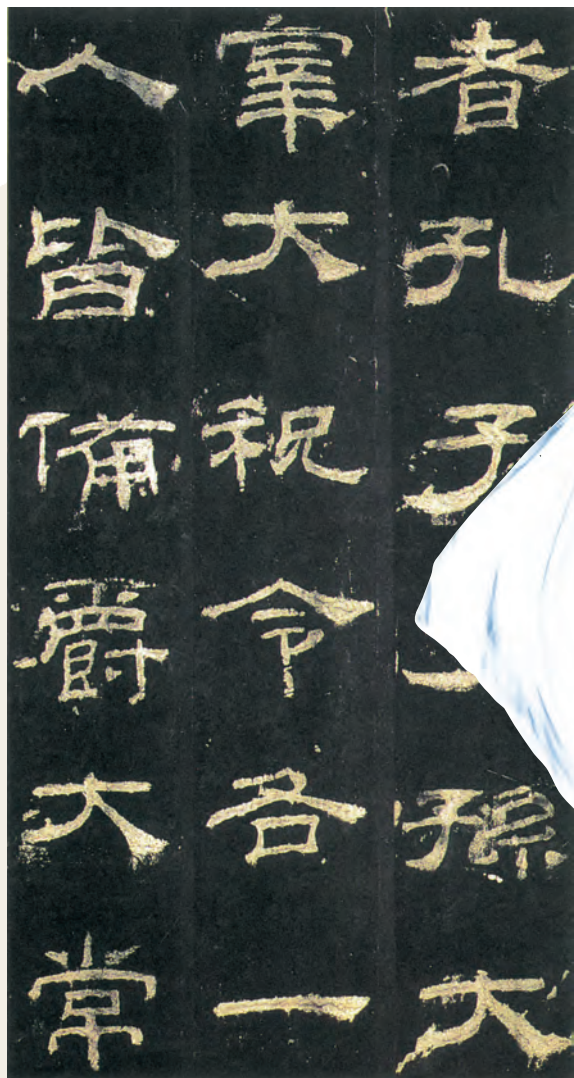 者孔子孫大
宰大祝令各一
人皆備爵大常